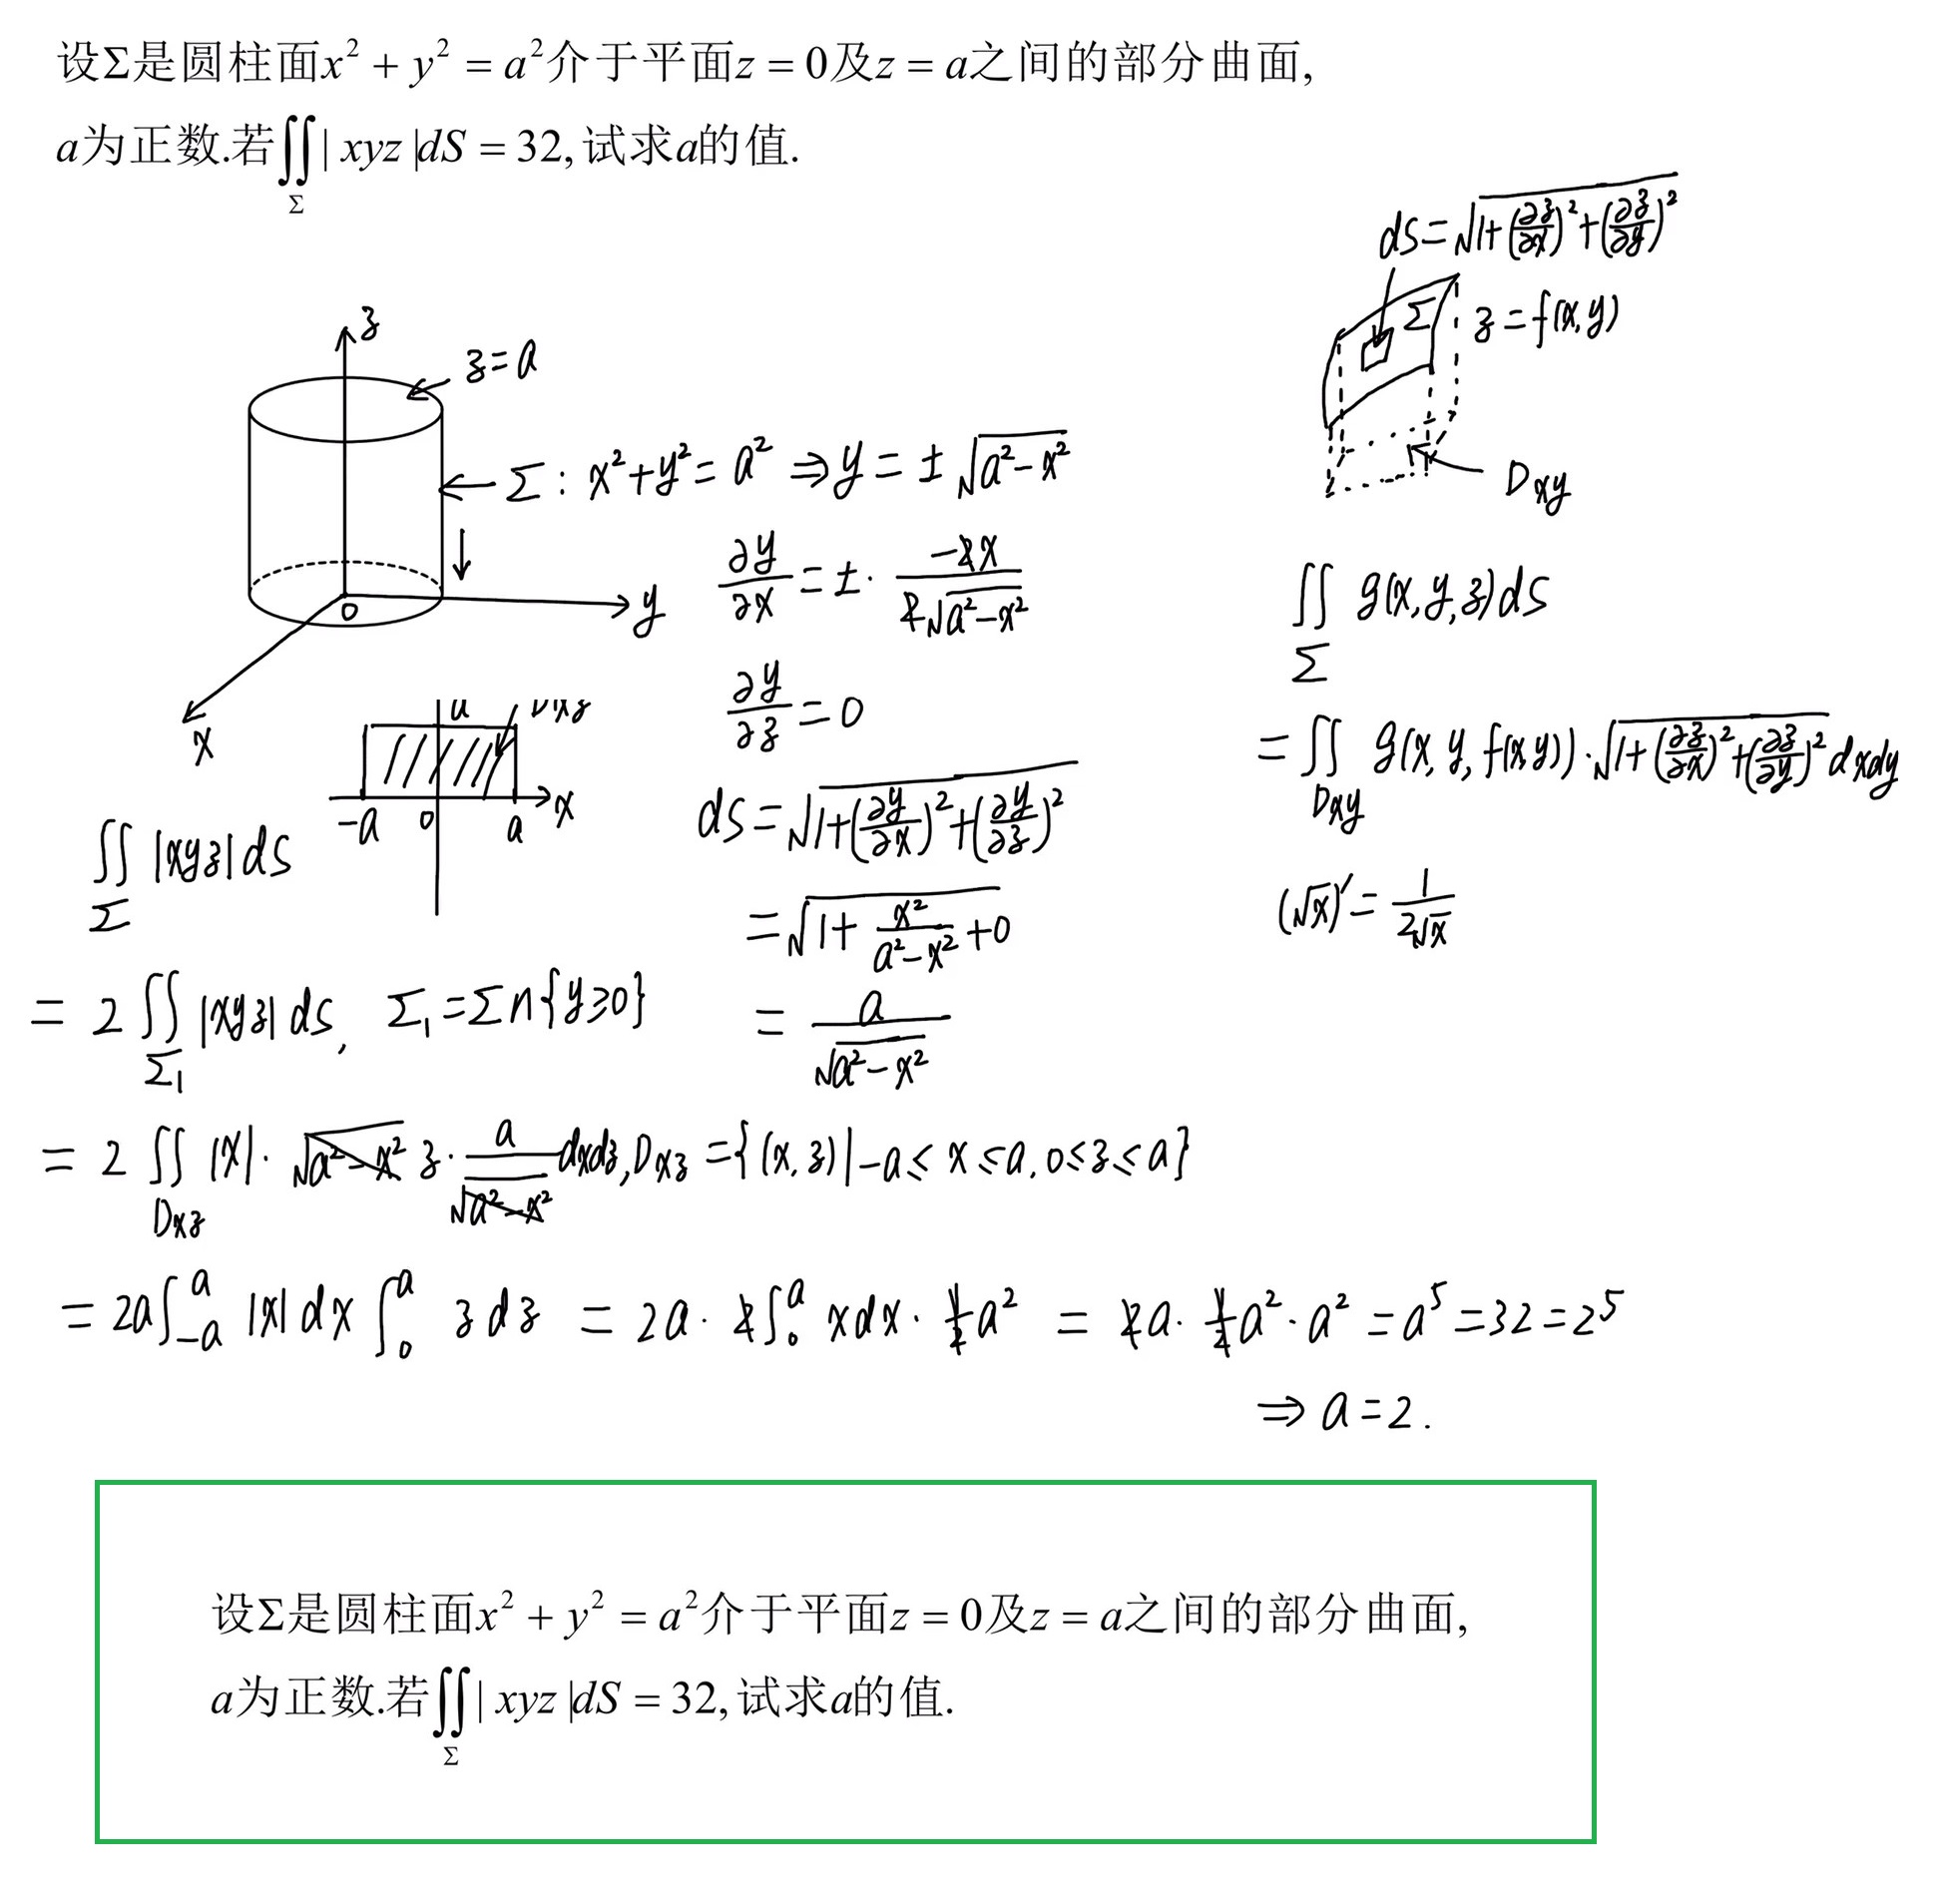 设Σ是圆柱面x² + y² = a²介于平面z = 0及z = a之间的部分曲面,
a为正数.若∬_Σ | xyz |dS = 32, 试求a的值.
ds=√(1+(∂z/∂x)²+(∂z/∂y)²)
Σ z=f(x,y)
D_xy
z
z=a
Σ: x²+y²=a² ⇒ y=±√(a²-x²)
0 y
x
∂y/∂x=±·(-2x)/(2√(a²-x²))
∂y/∂z=0
ds=√(1+(∂y/∂x)²+(∂y/∂z)²)
=√(1+x²/(a²-x²)+0)
=a/√(a²-x²)
∬_Σ g(x,y,z)ds
=∬_Dxy g(x,y,f(x,y))·√(1+(∂z/∂x)²+(∂z/∂y)²)dxdy
(√x)'=1/(2√x)
a D_xz
-a 0 a x
∬_Σ |xyz|ds
= 2∬_Σ₁ |xyz|ds, Σ₁=Σ∩{y≥0}
= 2∬_Dxz |x|·√(a²-x²) z·a/√(a²-x²) dxdz, D_xz={(x,z)|-a≤x≤a,0≤z≤a}
= 2a∫_{-a}^{a} |x|dx ∫_0^a z dz = 2a·2∫_0^a xdx·1/2 a² = 2a·1/2 a²·a² =a⁵=32=2⁵
⇒ a=2.
设Σ是圆柱面x² + y² = a²介于平面z = 0及z = a之间的部分曲面,
a为正数.若∬_Σ | xyz |dS = 32, 试求a的值.